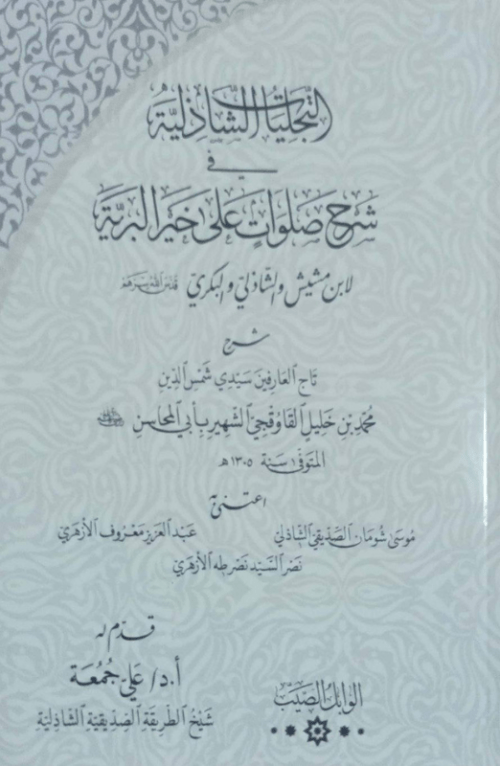 التجليات الشاذلية
في
شرح صلوات على خير البرية
لابن مشيش والشاذلي والبكري قدس الله سرهم
شرح
تاج العارفين سيدي شمس الدين
محمد بن خليل القاوقجي الشهير بأبي المحاسن
المتوفى سنة ١٣٠٥ هـ
اعتنى به
موسى شومان الصديقي الشاذلي عبد العزيز معروف الأزهري
نصر السيد نصر طه الأزهري
قدم له
أ.د/ علي جمعة
شيخ الطريقة الصديقية الشاذلية
الوابل الصيب